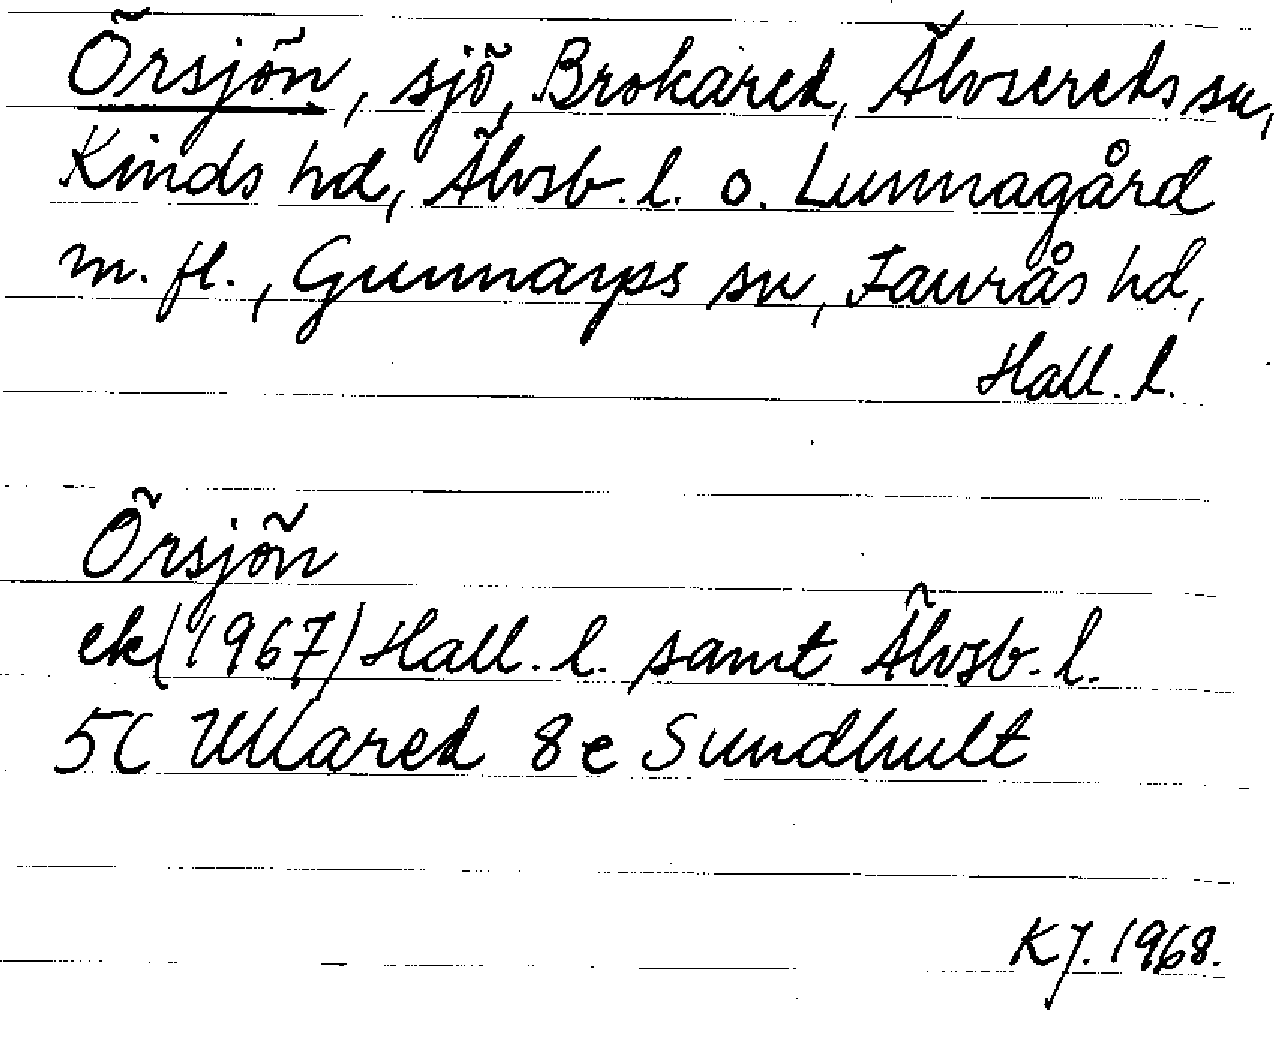 Örsjön, sjö, Brokared, Älvsereds sn,
Kinds hd, Älvsb. l. o. Lunnagård
m. fl., Gunnarps sn, Faurås hd,
Hall. l.
Örsjön
ek (1967) Hall. l. samt Älvsb. l.
5C Ullared 8e Sundhult
KJ. 1968.